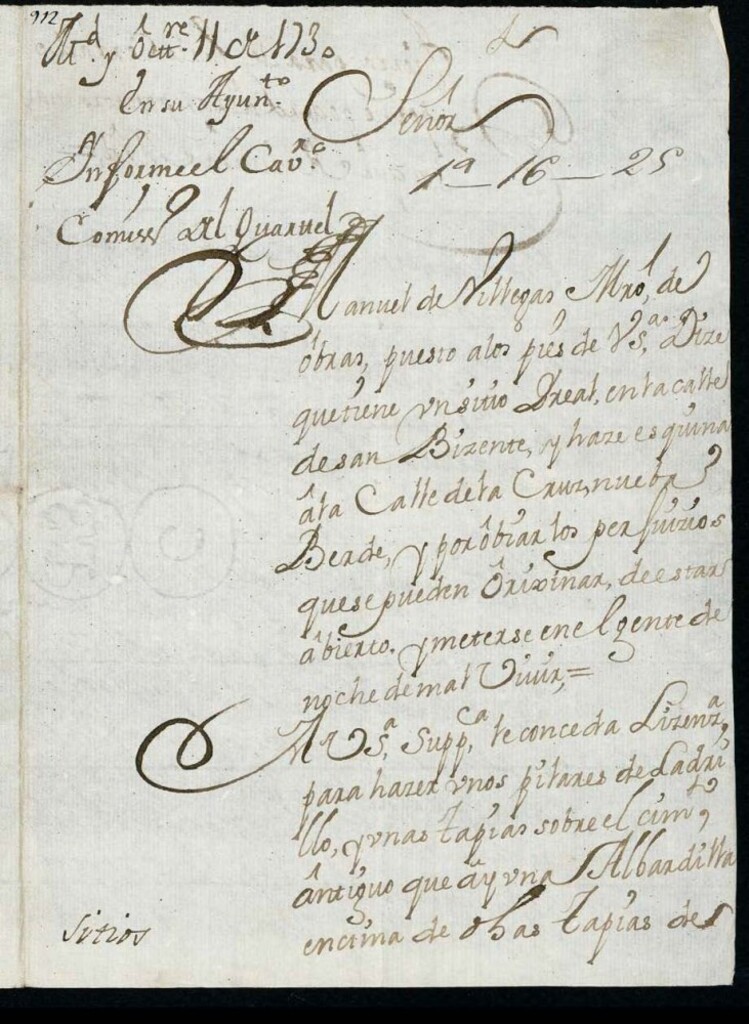 912
M.d y Octt.re 11 de 1730
En su Ayun.to
Señor
Informe el Cav.ro
1a - 16 - 25
Comiss.o del Quartel
Manuel de Villegas Mro, de
obras, puesto a los pies de V.s.a Dize
que tiene un sitio Dreal, en la calle
de san Bizente, y haze esquina
âla Calle dela Cruz nueba
Berde, y por ôbiar los perjuizios
que se pueden Ôrixinar, de estar
âbierto. y meterse en el gente de
noche de mal Viuir, =
A V.s.a Supp.ca le conceda Lizenz.a
para hazer unos pilares de Ladri
llo, y unas tapias sobre el cim.to
ântiguo que ây y una Albardilla
encima de dhas tapias de
Sitios